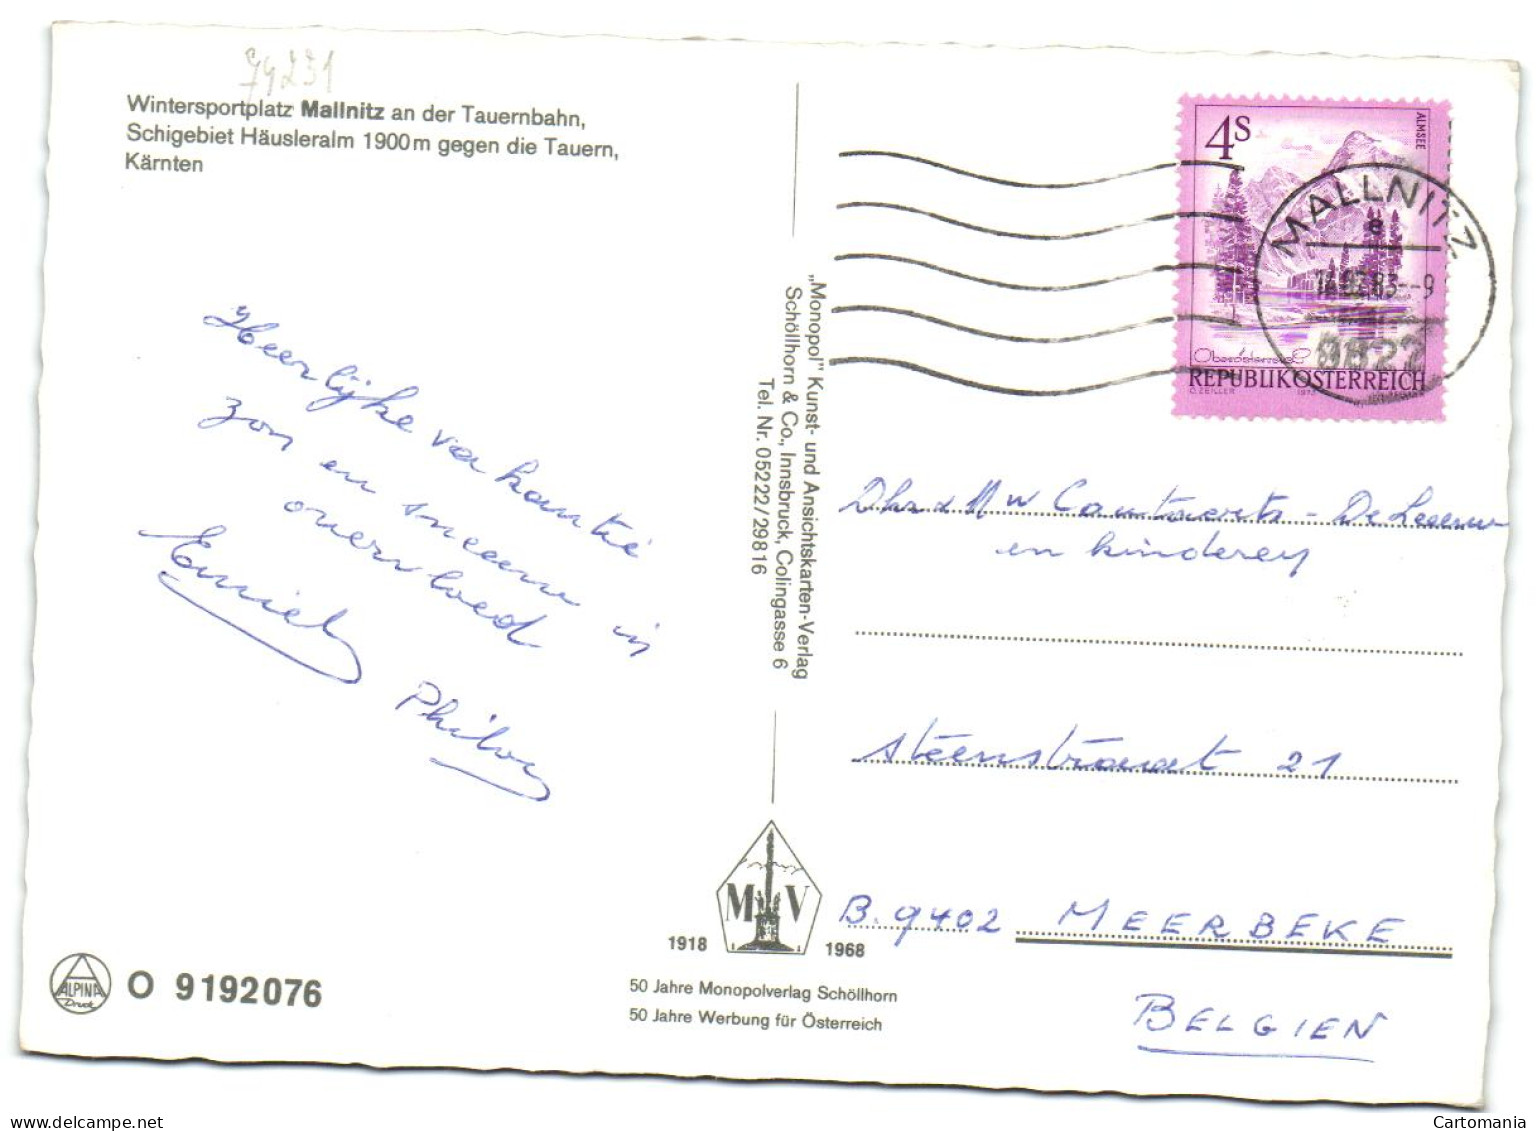 74231
Wintersportplatz Mallnitz an der Tauernbahn,
Schigebiet Häusleralm 1900m gegen die Tauern,
Kärnten
Heerlijke vakantie
zon en sneeuw in
overvloed
Emiel
"Monopol" Kunst- und Ansichtskarten-Verlag
Schöllhorn & Co., Innsbruck, Colingasse 6
Tel. Nr. 05222/29816
4S
ALMSEE
MALLNITZ
e
83--9
9822
REPUBLIK ÖSTERREICH
O. ZEILLER
Dhr & Mw Cautaerts - De Leeuw
en kinderen
steenstraat 21
B. 9402 MEERBEKE
BELGIEN
M V
1918 1968
50 Jahre Monopolverlag Schöllhorn
50 Jahre Werbung für Österreich
ALPINA
Druck
O 9192076
delcampe.net
Cartomania